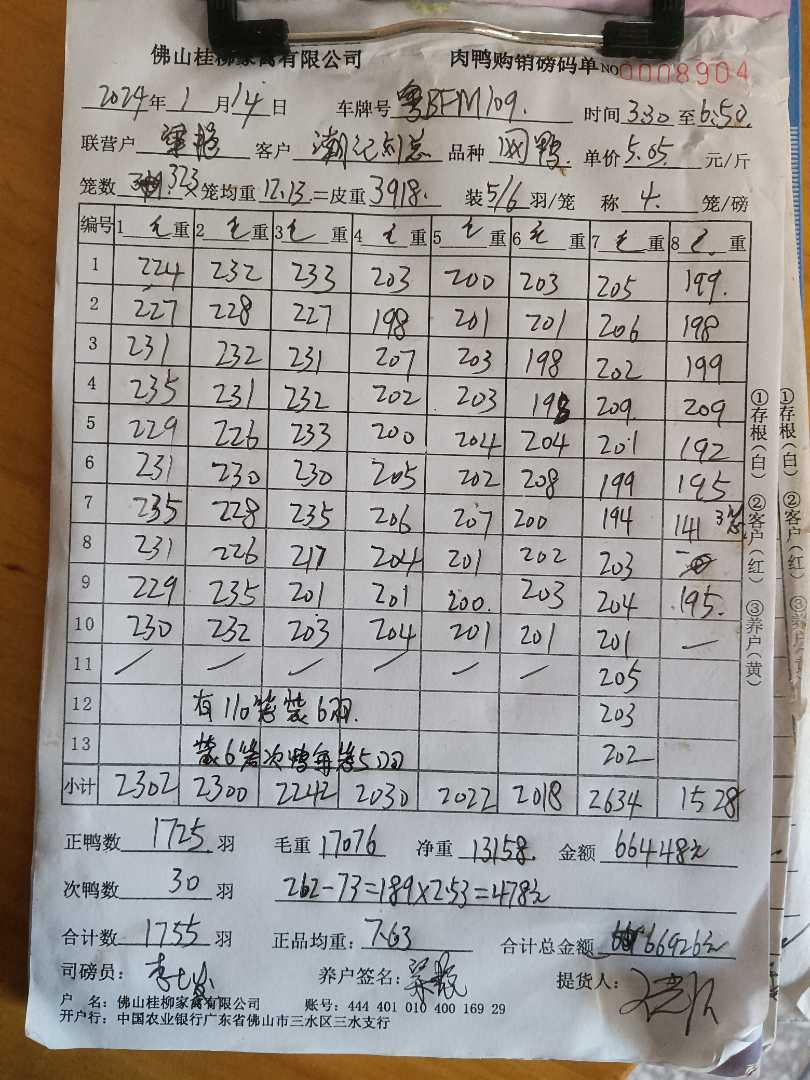 佛山桂柳家禽有限公司 肉鸭购销磅码单 NO 0008904
2024年 1月 14日 车牌号 粤BFM109. 时间 3:30 至 6:50
联营户 梁艳 客户 潮记刘总 品种 次鸭 单价 5.05 元/斤
笼数 323 ×笼均重 12.13 =皮重 3918. 装 5/6 羽/笼 称 4. 笼/磅
编号 1 毛重 2 毛重 3 毛重 4 毛重 5 毛重 6 毛重 7 毛重 8 毛重
1 224 232 233 203 200 203 205 199.
2 227 228 227 198 201 201 206 198
3 231 232 231 207 203 198 202 199
4 235 231 232 202 203 198 209. 209
5 229 226 233 200 204 204 201 192
6 231 230 230 205 202 208 199 195
7 235 228 235 206 207 200 194 141 3笼
8 231 226 217 204 201 202 203 —
9 229 235 201 201 200. 203 204 195.
10 230 232 203 204 201 201 201 —
11 / / / / / / 205
12 有110笼装6羽. 203
13 装6笼次鸭每笼5羽 202
小计 2302 2300 2242 2030 2022 2018 2634 1528
正鸭数 1725 羽 毛重 17076 净重 13158. 金额 66448元
次鸭数 30 羽 262-73=189×2.53=478元
合计数 1755 羽 正品均重: 7.63 合计总金额 66926元
司磅员: 养户签名: 梁艳 提货人:
户 名: 佛山桂柳家禽有限公司 账号: 444 401 010 400 169 29
开户行: 中国农业银行广东省佛山市三水区三水支行
①存根(白) ②客户(红) ③养户(黄)
①存根(白) ②客户(红) ③养户(黄)